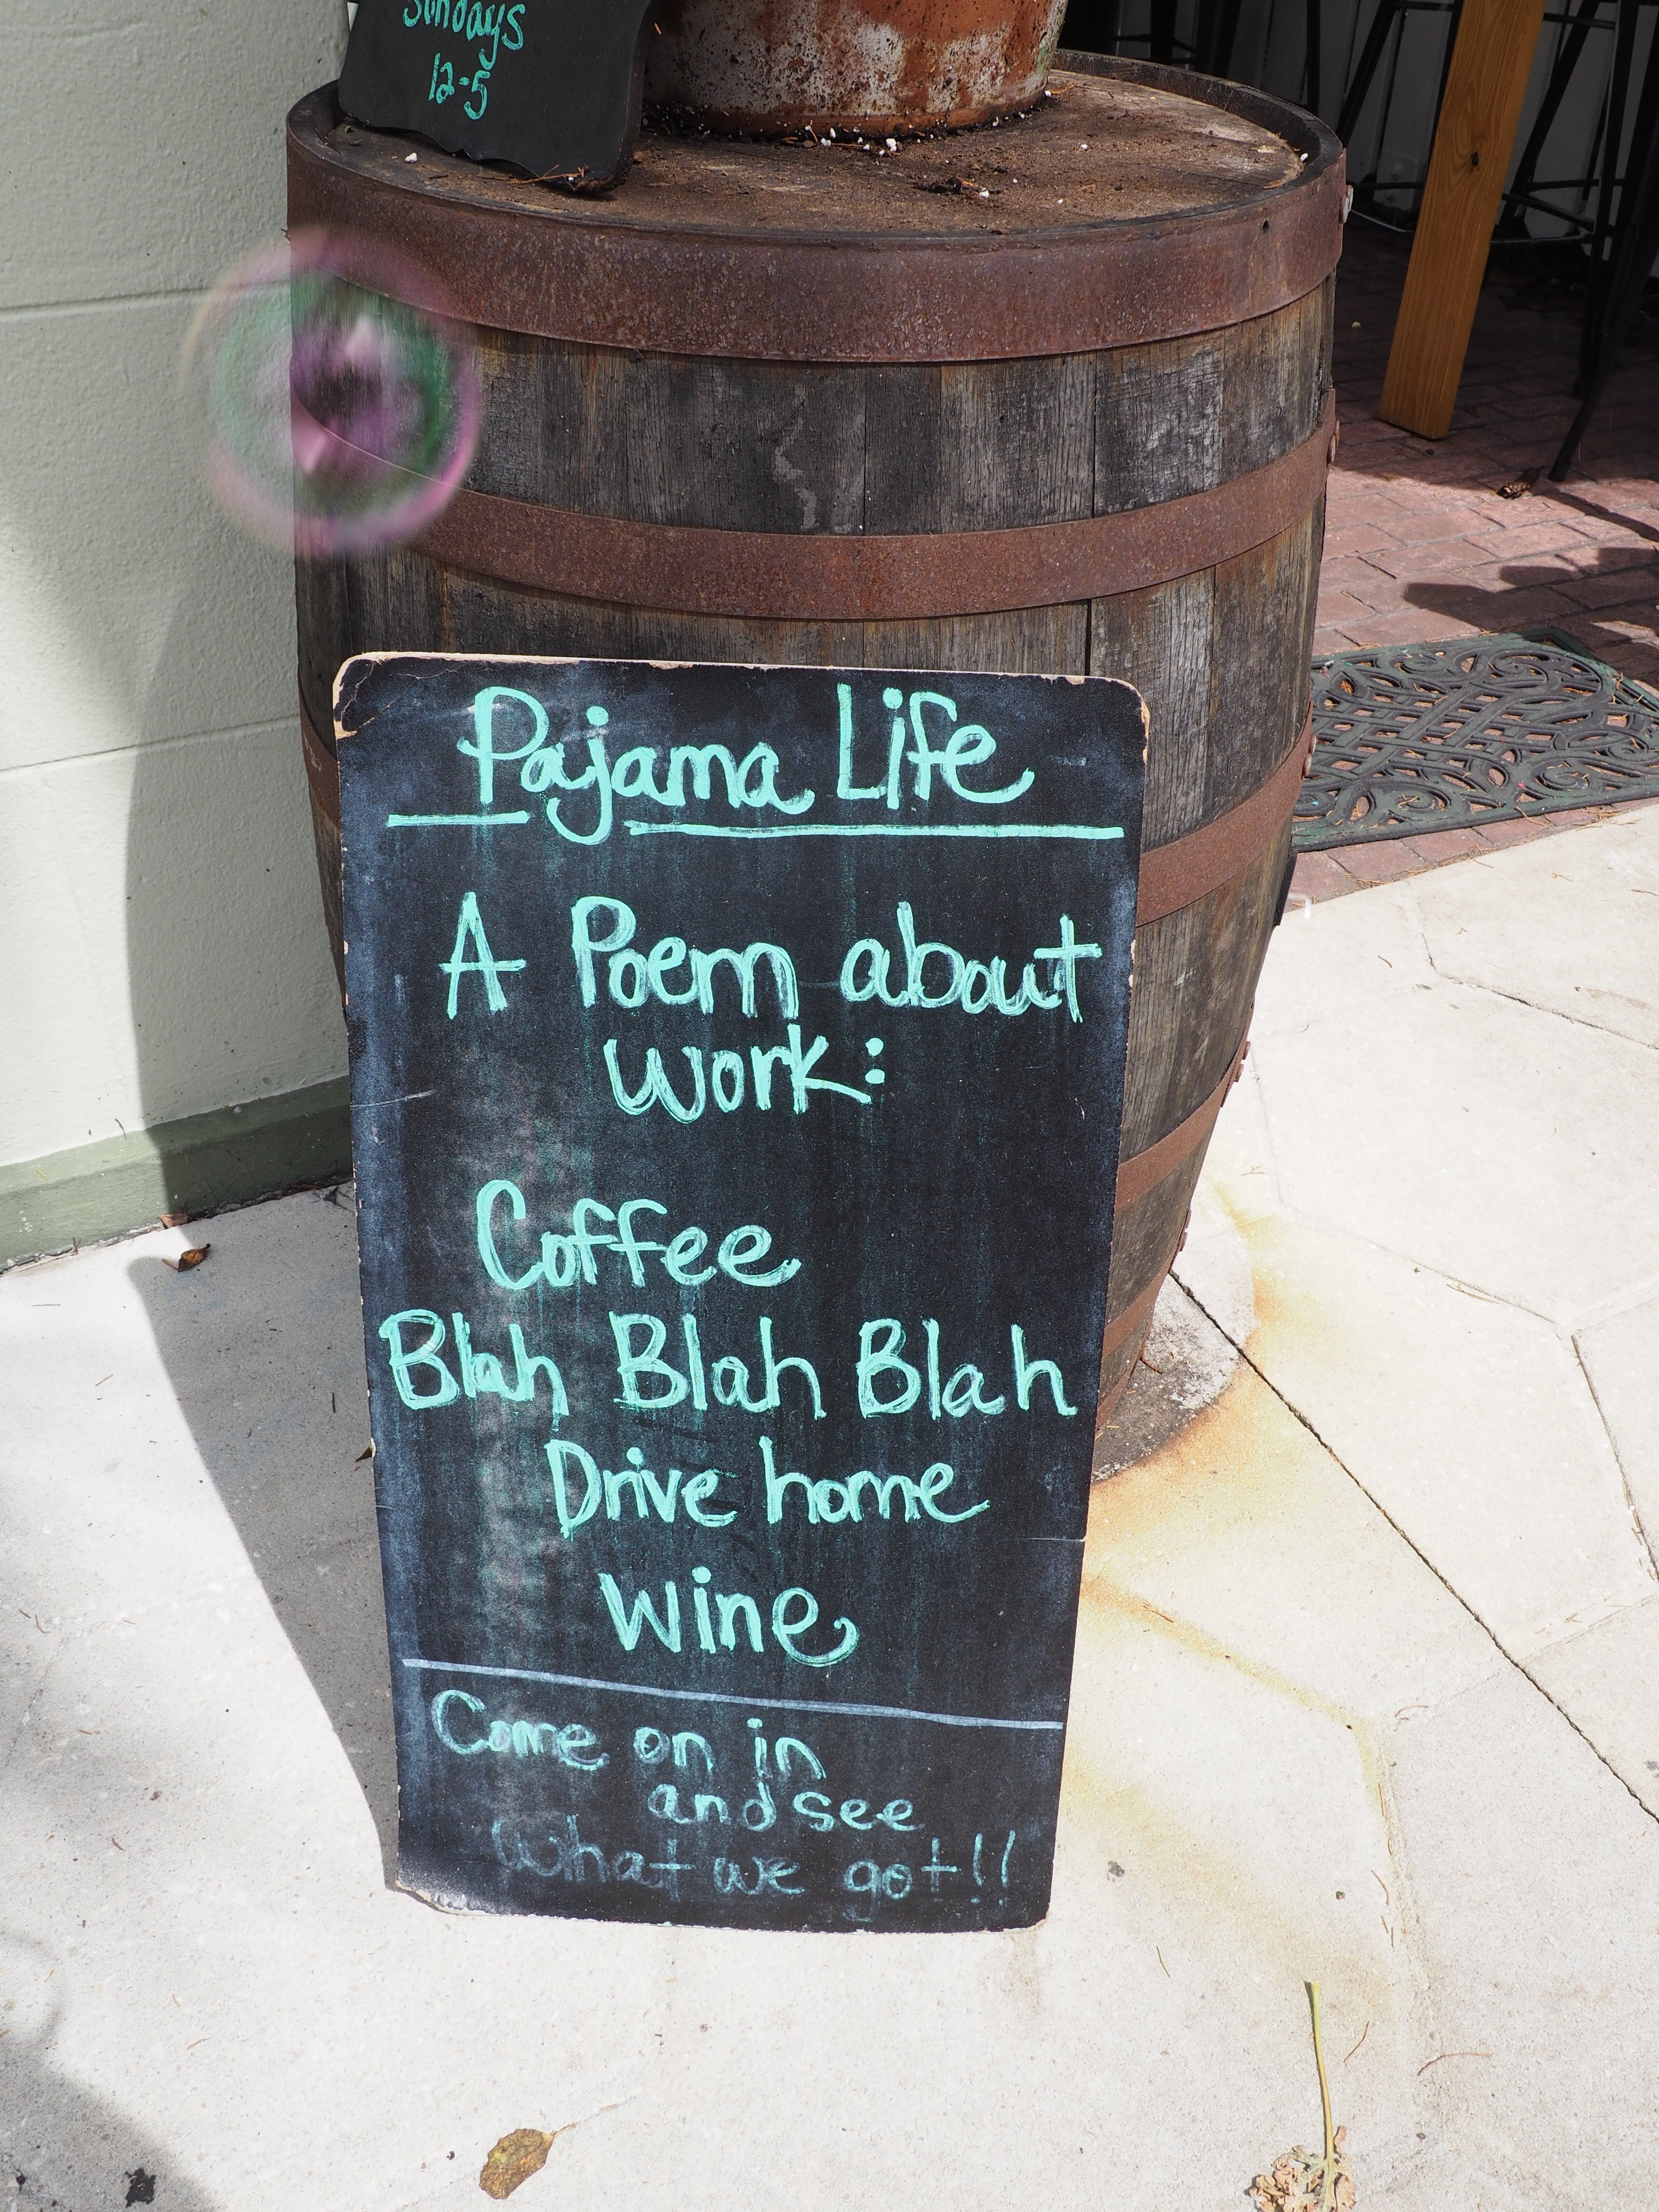 Sundays
12-5
Pajama Life
A Poem about
work:
Coffee
Blah Blah Blah
Drive home
Wine
Come on in
and see
What we got!!